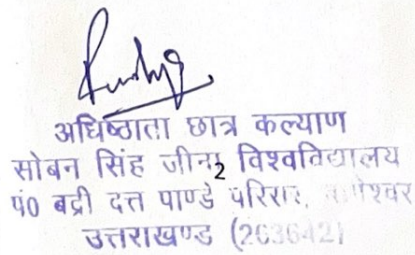 अधिष्ठाता छात्र कल्याण
सोबन सिंह जीना 2 विश्वविद्यालय
पं0 बद्री दत्त पाण्डे परिसर,
उत्तराखण्ड (263642)